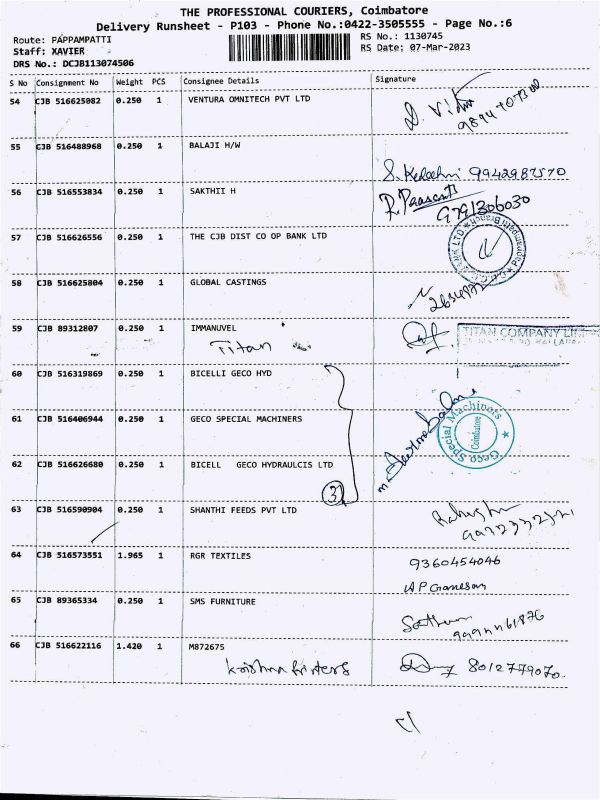 THE PROFESSIONAL COURIERS, Coimbatore
Delivery Runsheet - P103 - Phone No.:0422-3505555 - Page No.:6
Route: PAPPAMPATTI RS No.: 1130745
Staff: XAVIER RS Date: 07-Mar-2023
DRS No.: DCJB113074506
S No Consignment No Weight PCS Consignee Details Signature
54 CJB 516625082 0.250 1 VENTURA OMNITECH PVT LTD
55 CJB 516488968 0.250 1 BALAJI H/W
9942987570
56 CJB 516553834 0.250 1 SAKTHII H
9791306030
57 CJB 516626556 0.250 1 THE CJB DIST CO OP BANK LTD
58 CJB 516625804 0.250 1 GLOBAL CASTINGS
59 CJB 89312807 0.250 1 IMMANUVEL
Titan
TITAN COMPANY LIM
60 CJB 516319869 0.250 1 BICELLI GECO HYD
61 CJB 516406944 0.250 1 GECO SPECIAL MACHINERS
Geco Special Machiners
Coimbatore
62 CJB 516626680 0.250 1 BICELL GECO HYDRAULCIS LTD
3
63 CJB 516590904 0.250 1 SHANTHI FEEDS PVT LTD
64 CJB 516573551 1.965 1 RGR TEXTILES
9360454046
AP Ganesan
65 CJB 89365334 0.250 1 SMS FURNITURE
66 CJB 516622116 1.420 1 M872675
8012779070